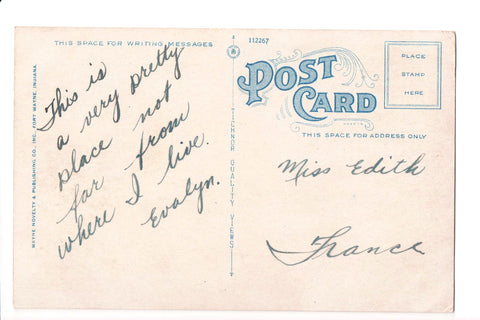 THIS SPACE FOR WRITING MESSAGES
112267
POST CARD
PLACE
STAMP
HERE
THIS SPACE FOR ADDRESS ONLY
WAYNE NOVELTY & PUBLISHING CO., INC. FORT WAYNE, INDIANA.
TICHNOR QUALITY VIEWS
This is
a very pretty
place not
far from
where I live.
Evalyn.
Miss Edith
France